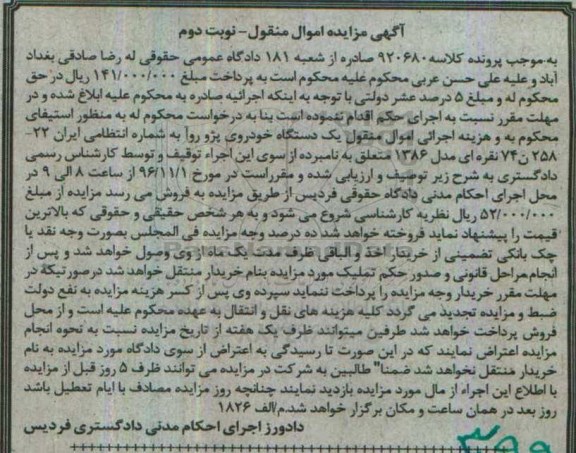 آگهی مزایده اموال منقول - نوبت دوم
به موجب پرونده کلاسه ۹۲۰۶۸۰ صادره از شعبه ۱۸۱ دادگاه عمومی حقوقی له رضا صادقی بغداد
آباد و علیه علی حسن عربی محکوم علیه محکوم است به پرداخت مبلغ ۱۴۱/۰۰۰/۰۰۰ ریال در حق
محکوم له و مبلغ ۵ درصد عشر دولتی با توجه به اینکه اجرائیه صادره به محکوم علیه ابلاغ شده و در
مهلت مقرر نسبت به اجرای حکم اقدام ننموده است بنا به درخواست محکوم له به منظور استیفای
محکوم به و هزینه اجرائی اموال منقول یک دستگاه خودروی پژو روآ به شماره انتظامی ایران ۲۲-
۲۵۸ ن ۷۴ نقره ای مدل ۱۳۸۶ متعلق به نامبرده از سوی این اجراء توقیف و توسط کارشناس رسمی
دادگستری به شرح زیر توصیف و ارزیابی شده و مقرراست در مورخ ۹۶/۱۱/۱ از ساعت ۸ الی ۹ در
محل اجرای احکام مدنی دادگاه حقوقی فردیس از طریق مزایده به فروش می رسد مزایده از مبلغ
۵۲/۰۰۰/۰۰۰ ریال نظریه کارشناسی شروع می شود و به هر شخص حقیقی و حقوقی که بالاترین
قیمت را پیشنهاد نماید فروخته خواهد شد ده درصد وجه مزایده فی المجلس بصورت وجه نقد یا
چک بانکی تضمینی از خریدار اخذ و الباقی ظرف مدت یک ماه از وی وصول خواهد شد و پس از
انجام مراحل قانونی و صدور حکم تملیک مورد مزایده بنام خریدار منتقل خواهد شد درصورتیکه در
مهلت مقرر خریدار وجه مزایده را پرداخت ننماید سپرده وی پس از کسر هزینه مزایده به نفع دولت
ضبط و مزایده تجدید می گردد کلیه هزینه های نقل و انتقال به عهده محکوم علیه است و از محل
فروش پرداخت خواهد شد طرفین میتوانند ظرف یک هفته از تاریخ مزایده نسبت به نحوه انجام
مزایده اعتراض نمایند که در این صورت تا رسیدگی به اعتراض از سوی دادگاه مورد مزایده به نام
خریدار منتقل نخواهد شد ضمنا" طالبین به شرکت در مزایده می توانند ظرف ۵ روز قبل از مزایده
با اطلاع این اجراء از مال مورد مزایده بازدید نمایند چنانچه روز مزایده مصادف با ایام تعطیل باشد
روز بعد در همان ساعت و مکان برگزار خواهد شد.م/الف ۱۸۲۶
دادورز اجرای احکام مدنی دادگستری فردیس